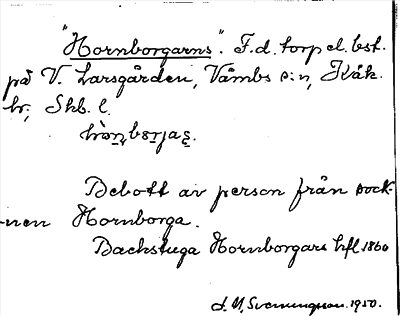 "Hornborgarns". F.d. torp el. bst.
på V. Larsgården, Vämbs s:n, Kåk.
hr, Skb. l.
Bebott av person från sock-
nen Hornborga.
Backstuga Hornborgars hfl. 1860
1950.